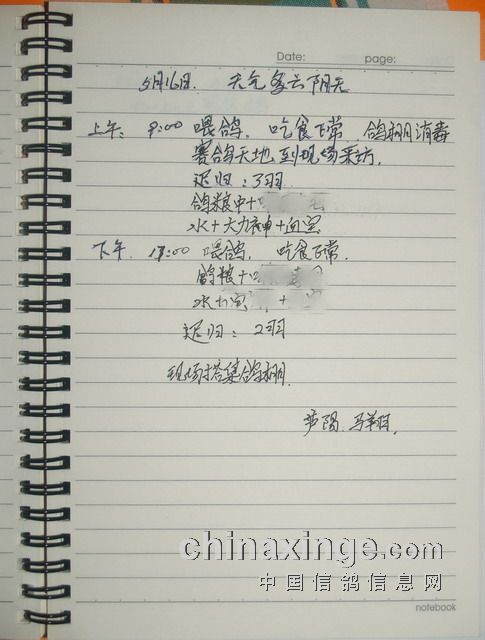 Date: page:
5月16日. 天气多云阴天
上午: 9:00 喂鸽, 吃食正常 鸽棚消毒
赛鸽天地到现场采访.
迟归:3羽
鸽粮中+
水+大力神+血宝
下午. 17:00 喂鸽, 吃食正常.
鸽粮+
水+宝 +
迟归: 2羽
现场搭集鸽棚.
芦阳. 马翔.
chinaxinge.com
中国信鸽信息网
notebook